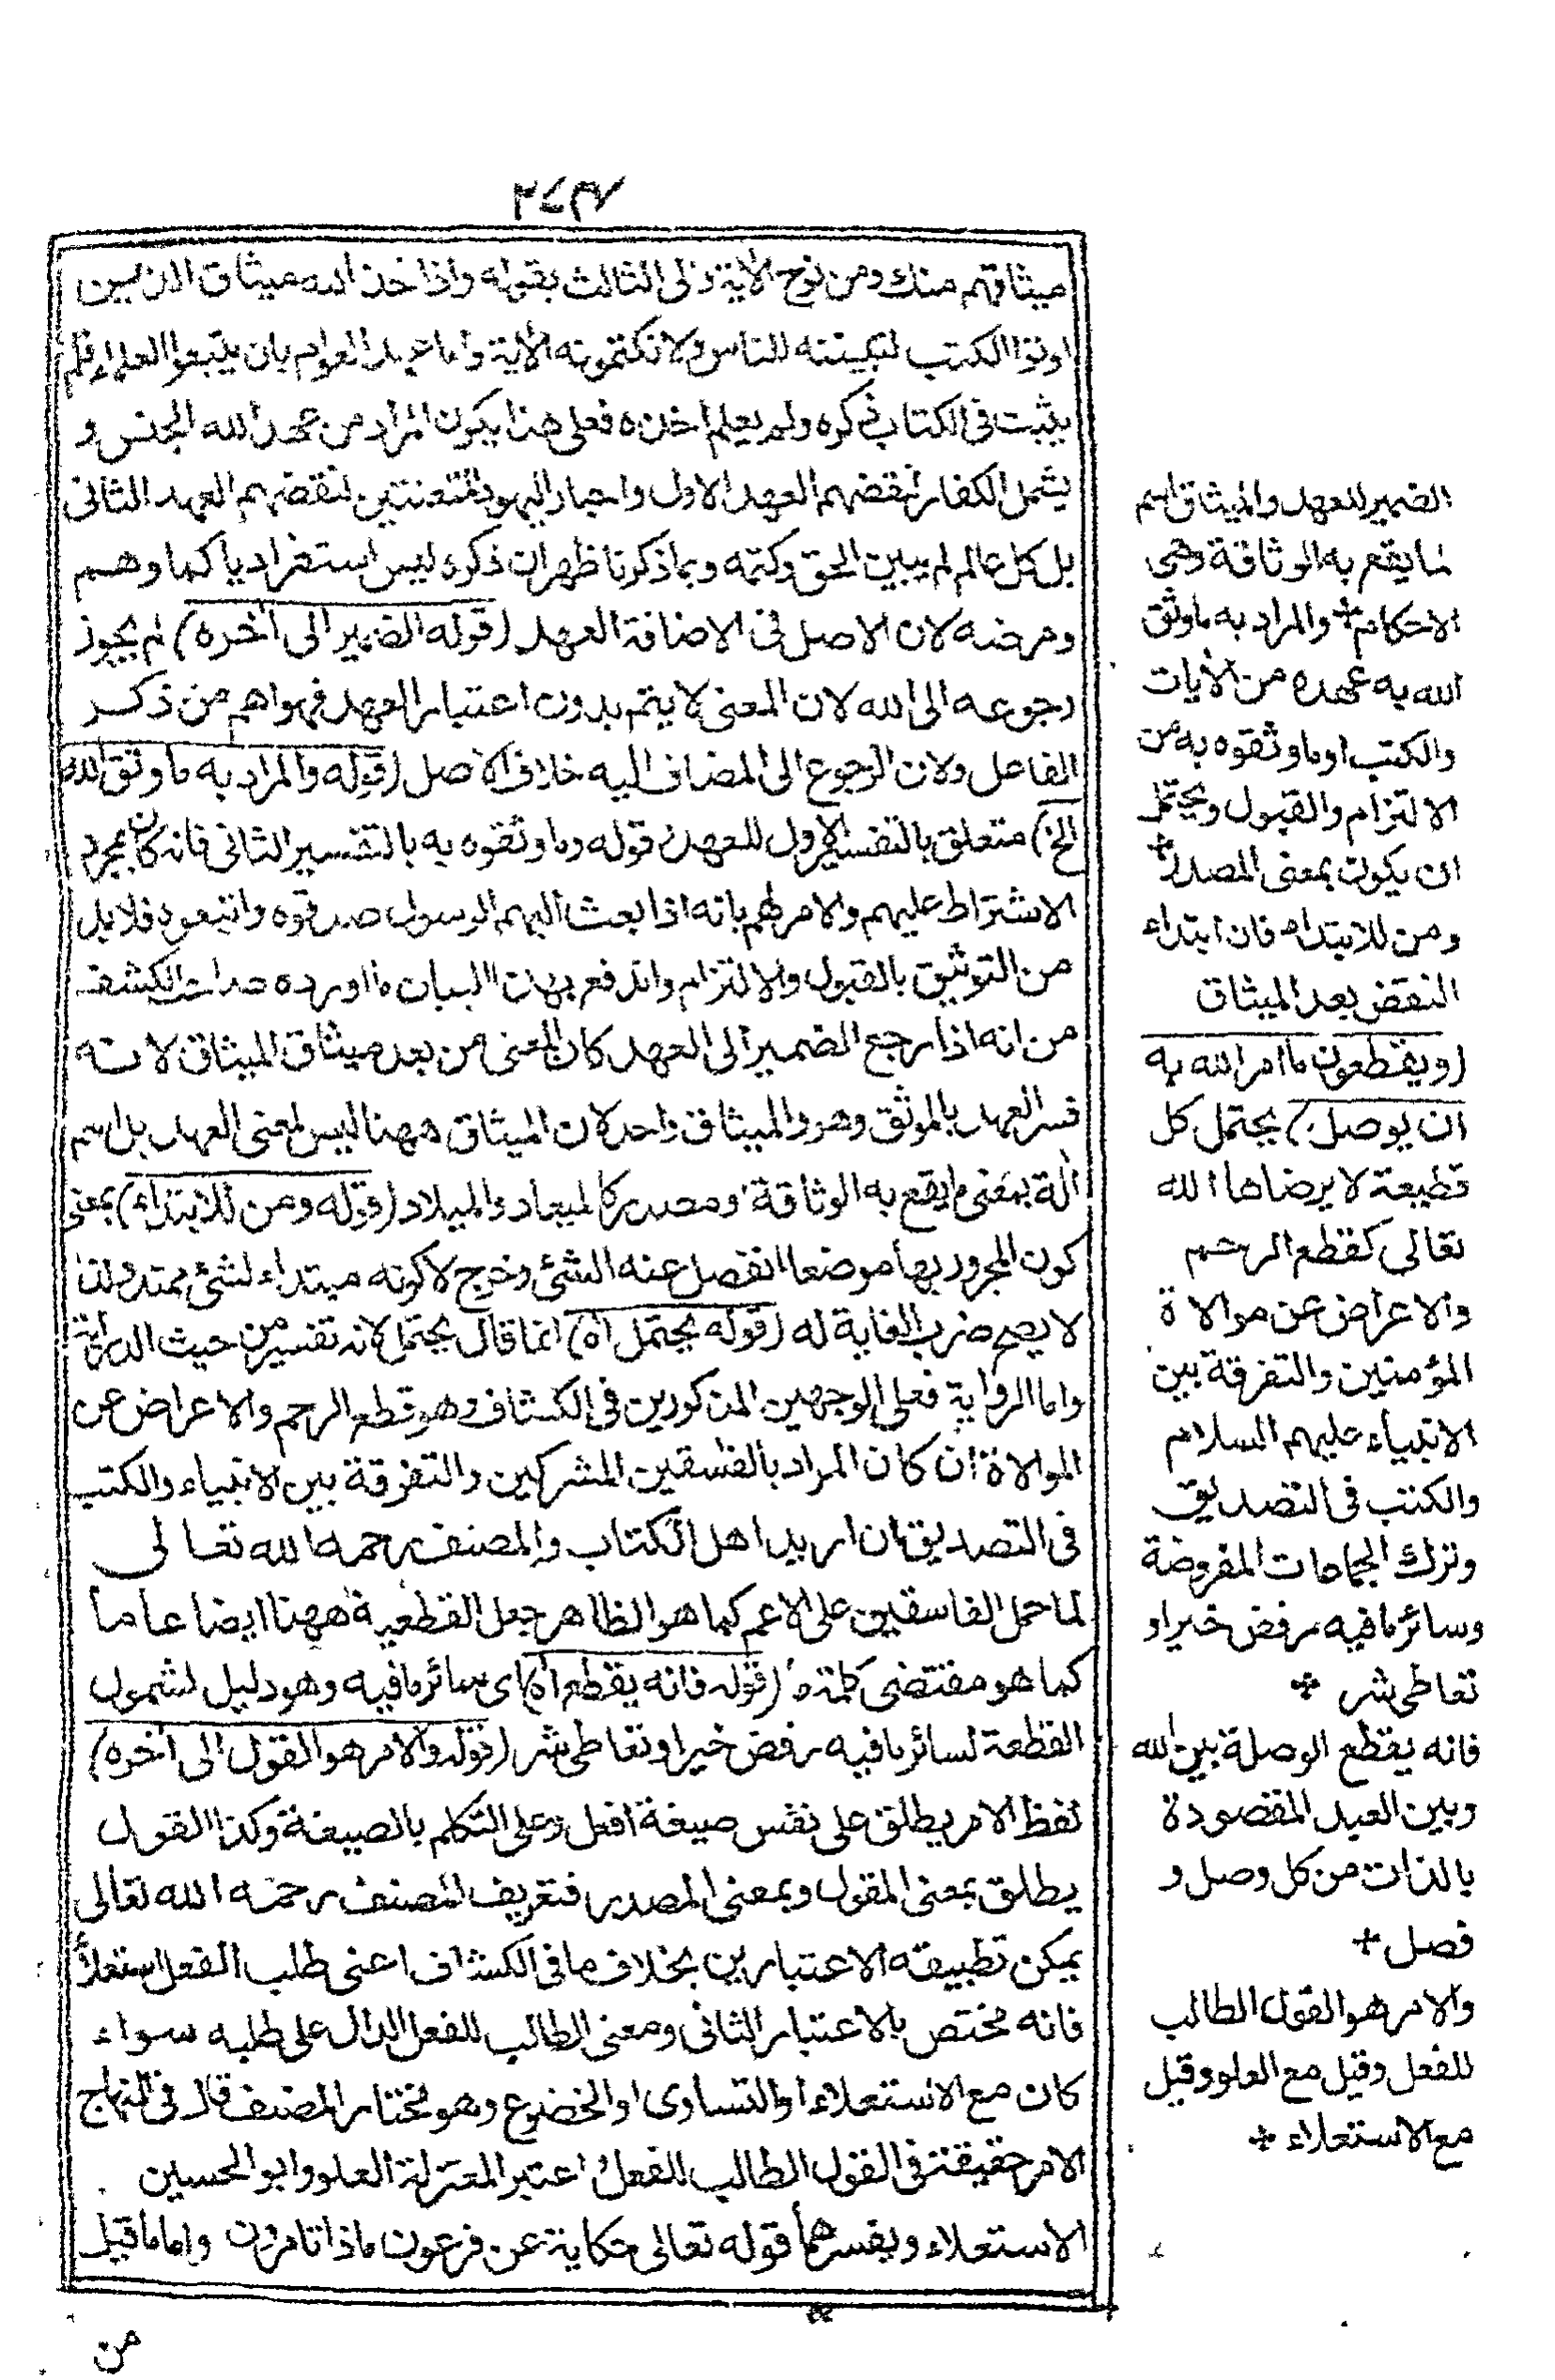 ميثاقهم منك ومن نوح الاٰية والى الثالث بقوله واذا خذ الله ميثاق الذين
اوتوا الكتب لتبيننه للناس ولا تكتمونه الاٰية واما عهد العوام بان يتبعوا العلماء فلم
يثبت فى الكتاب ذكره ولم يعلم اخذه فعلى هذا يكون المراد من عهد الله الجنس و
يشمل الكفار لنقضهم العهد الاول واحبار اليهود المتعنتين لنقضهم العهد الثانى
بل كل عالم لم يبين الحق وكتمه وبما ذكرنا ظهر ان ذكره ليس استطراديا كما وهم
ومرضه لان الاصل فى الاضافة العهد (قوله الضمير الى اٰخره) لم يجوز
رجوعه الى الله لان المعنى لا يتم بدون اعتبار العهد فهو اهم من ذكر
الفاعل ولان الرجوع الى المضاف اليه خلاف الاصل (قوله والمراد به ما وثق الله
الخ) متعلق بالتفسير الاول للعهد وقوله وما وثقوه به بالتفسير الثانى فانه كان مجرد
الاشتراط عليهم والامر لهم بانه اذا بعث اليهم الرسول صدقوه واتبعوه فلا بد
من التوثيق بالقبول والالتزام واندفع بهذا البيان ما اورده صاحب الكشف
من انه اذا رجع الضمير الى العهد كان المعنى من بعد ميثاق الميثاق لانه
فسر العهد بالموثق وهو والميثاق واحد لان الميثاق ههنا ليس لمعنى العهد بل اسم
اٰلة بمعنى ما يقع به الوثاقة ومصدر كالميعاد والميلاد (قوله ومن للابتداء) بمعنى
كون المجرور بها موضعا انفصل عنه الشئ وخرج لا كونه مبتداء لشئ ممتد ولذا
لا يصح ضرب الغاية له (قوله يحتمل اه) انما قال يحتمل لانه تفسير من حيث الدراية
واما الرواية فعلى الوجهين المذكورين فى الكشاف وهو قطع الرحم والاعراض عن
الموالاة ان كان المراد بالفٰسقين المشركين والتفرقة بين الانبياء والكتب
فى التصديق ان اريد اهل الكتاب والمصنف رحمه الله تعالى
لما حمل الفاسقين على الاعم كما هو الظاهر جعل القطعية ههنا ايضا عاما
كما هو مقتضى كلمة ما (قوله فانه يقطع اه) اى سائر ما فيه وهو دليل لشمول
القطعة لسائر ما فيه رفض خير او تعاطى شر (قوله والامر هو القول الى اٰخره)
لفظ الامر يطلق على نفس صيغة افعل وعلى التكلم بالصيغة وكذا القول
يطلق بمعنى المقول وبمعنى المصدر فتعريف المصنف رحمه الله تعالى
يمكن تطبيقه الاعتبارين بخلاف ما فى الكشاف اعنى طلب الفعل استعلاًء
فانه مختص بالاعتبار الثانى ومعنى الطالب للفعل الدال على طلبه سواء
كان مع الاستعلاء او التساوى او الخضوع وهو مختار المصنف قال فى المنهاج
الامر حقيقة فى القول الطالب للفعل اعتبر المعتزلة العلو وابو الحسين
الاستعلاء ويفسدهما قوله تعالى حكاية عن فرعون ماذا تامرون واما ما قيل
من
الضمير للعهد والميثاق اسم
لما يقع به الوثاقة وهى
الاحكام والمراد به ما وثق
الله به عهده من الاٰيات
والكتب او ما وثقوه به من
الالتزام والقبول ويحتمل
ان يكون بمعنى المصدر
ومن للابتداء فان ابتداء
النقض بعد الميثاق
(ويقطعون ما امر الله به
ان يوصل) يحتمل كل
قطيعة لا يرضاها الله
تعالى كقطع الرحم
والاعراض عن موالاة
المؤمنين والتفرقة بين
الانبياء عليهم السلام
والكتب فى التصديق
وترك الجماعات المفروضة
وسائر ما فيه رفض خير او
تعاطى شر
فانه يقطع الوصلة بين الله
وبين العبد المقصودة
بالذات من كل وصل و
فصل
والامر هو القول الطالب
للفعل وقيل مع العلو وقيل
مع الاستعلاء